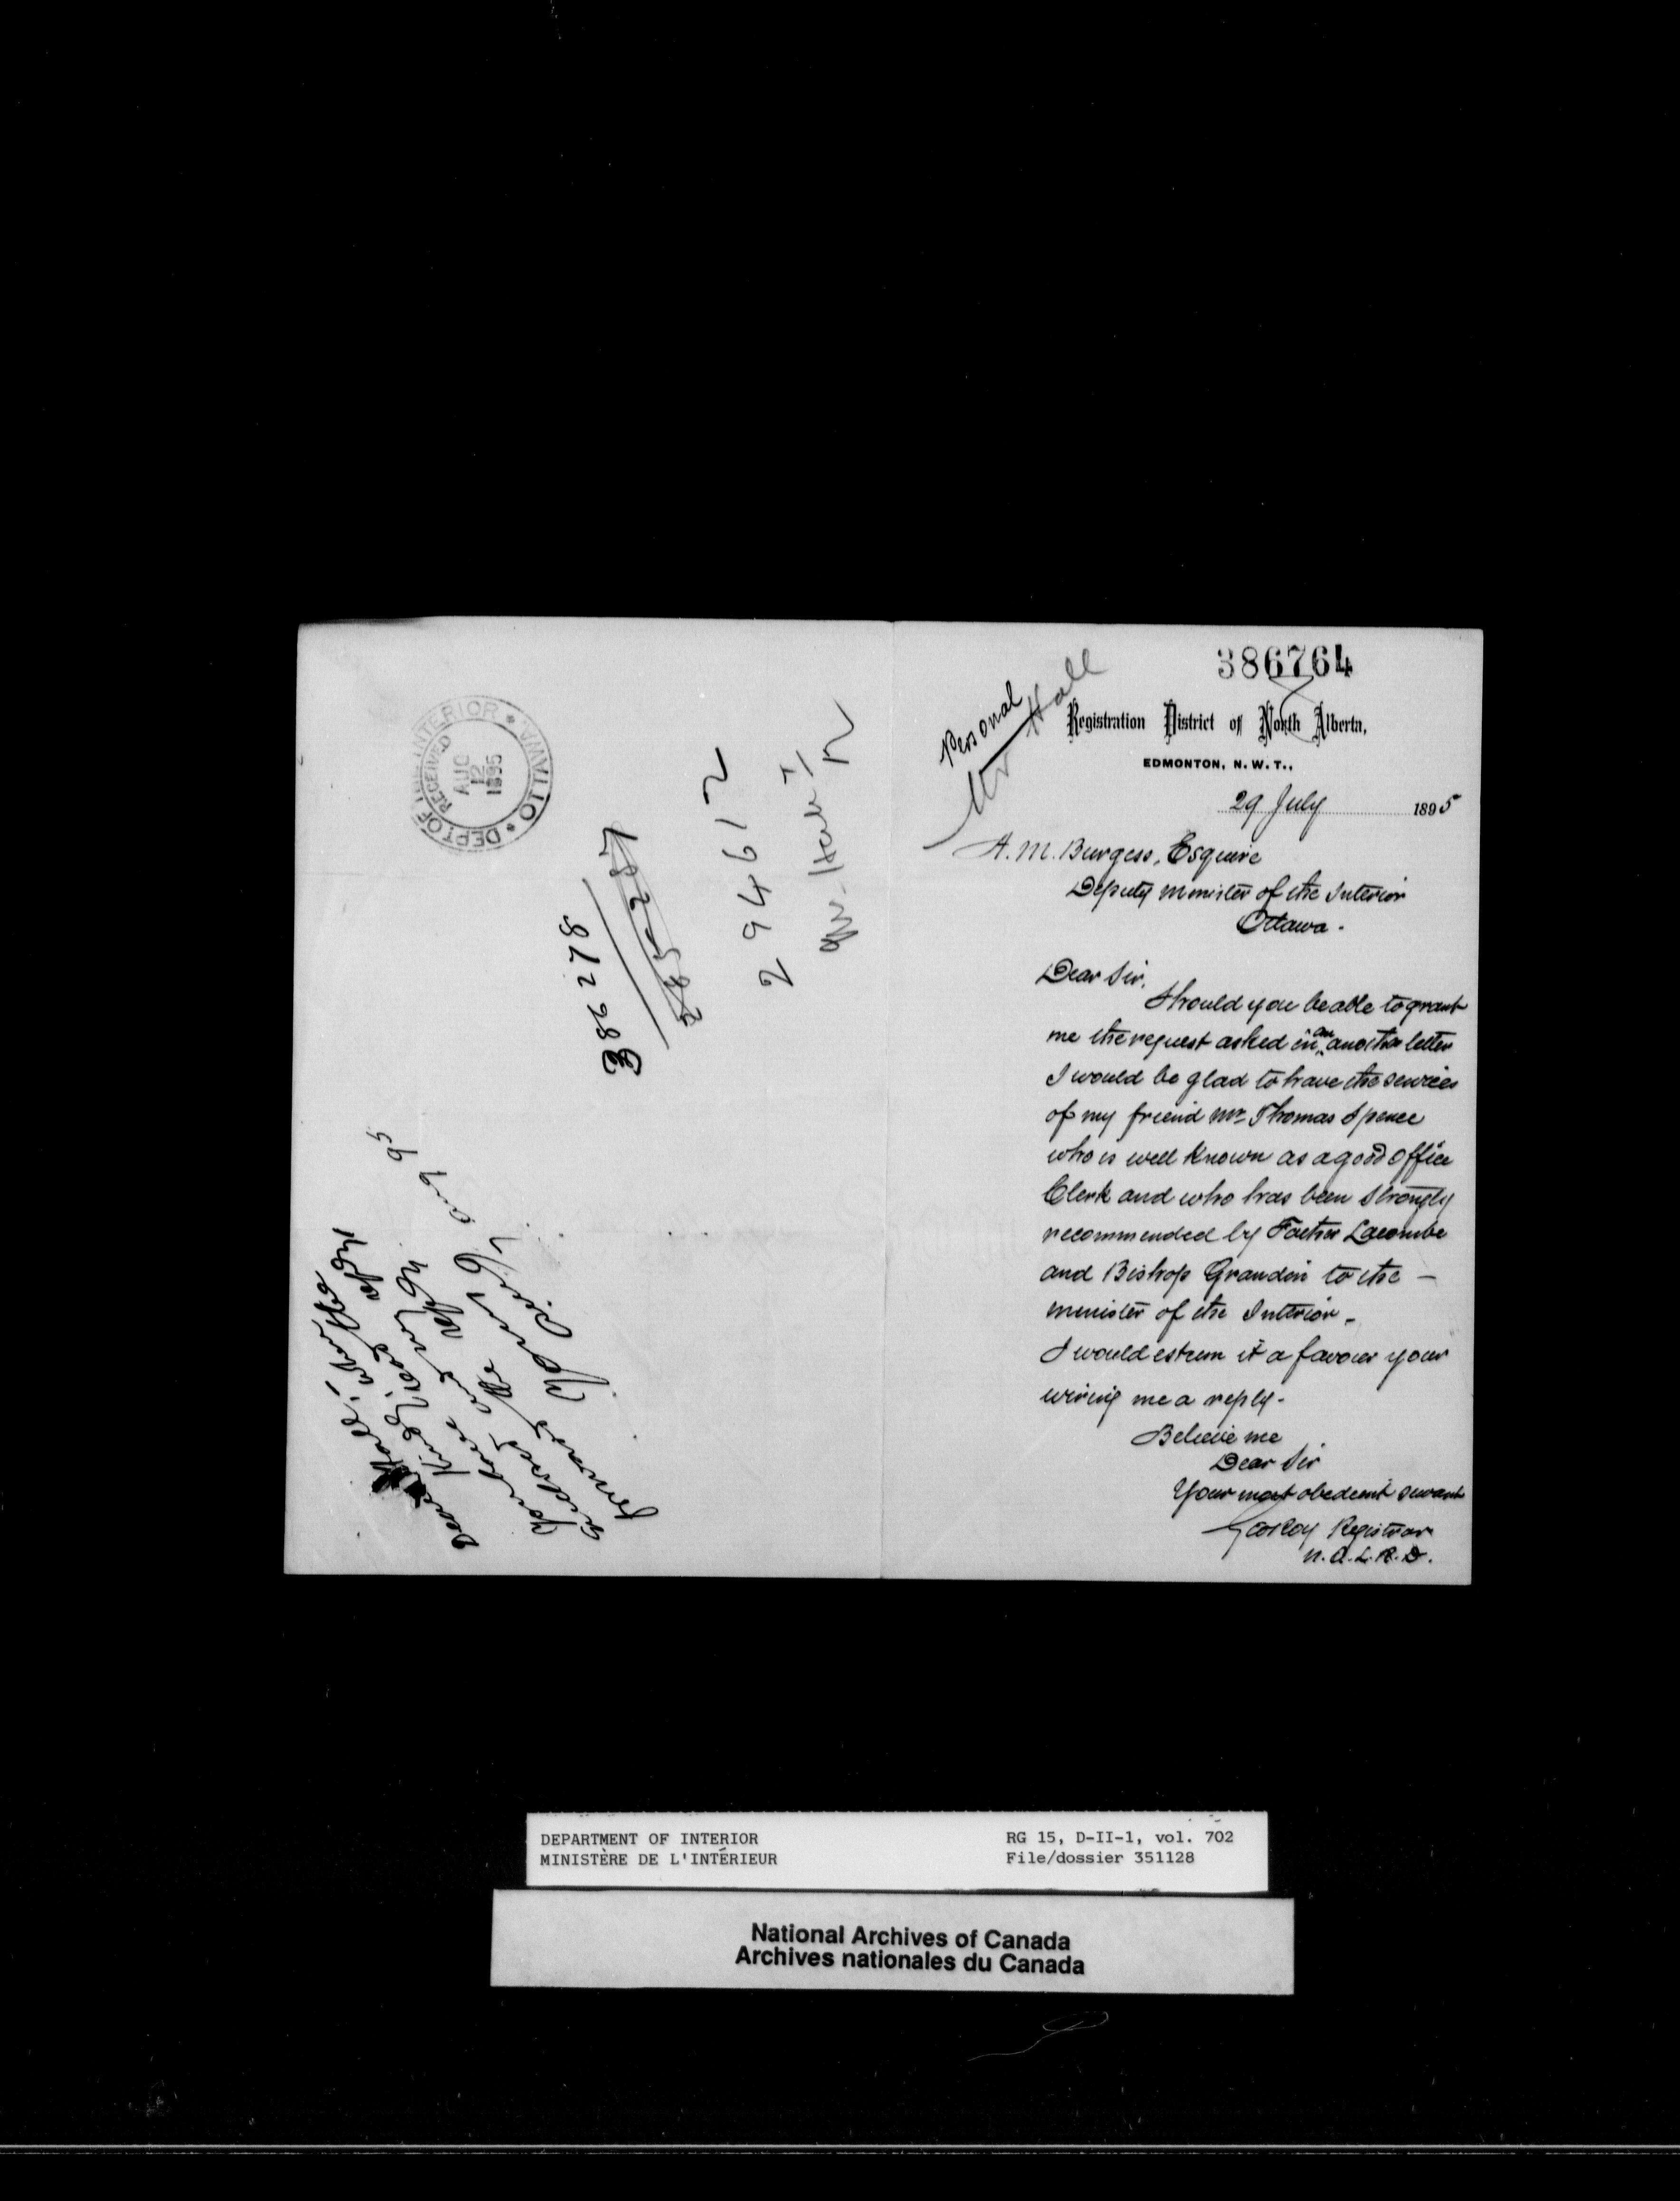 386764
Personal
Mr Hall
Registration District of North Alberta,
EDMONTON, N. W. T.,
29 July 1895
A. M. Burgess, Esquire
Deputy Minister of the Interior
Ottawa.
Dear Sir,
Should you be able to grant
me the request asked in an another letter
I would be glad to have the services
of my friend Mr Thomas Spence
who is well known as a good office
Clerk and who has been strongly
recommended by Father Lacombe
and Bishop Grandin to the —
minister of the Interior.
I would esteem it a favour your
wiring me a reply.
Believe me
Dear Sir
Your most obedient servant
Geo Roy Registrar
N. A. L. R. D.
DEPT OF THE INTERIOR
RECEIVED
AUG
12
1895
OTTAWA
386278
294612
Mr.
Hall:
Kindly read
reply
Aug 95
DEPARTMENT OF INTERIOR
MINISTÈRE DE L'INTÉRIEUR
RG 15, D-II-1, vol. 702
File/dossier 351128
National Archives of Canada
Archives nationales du Canada